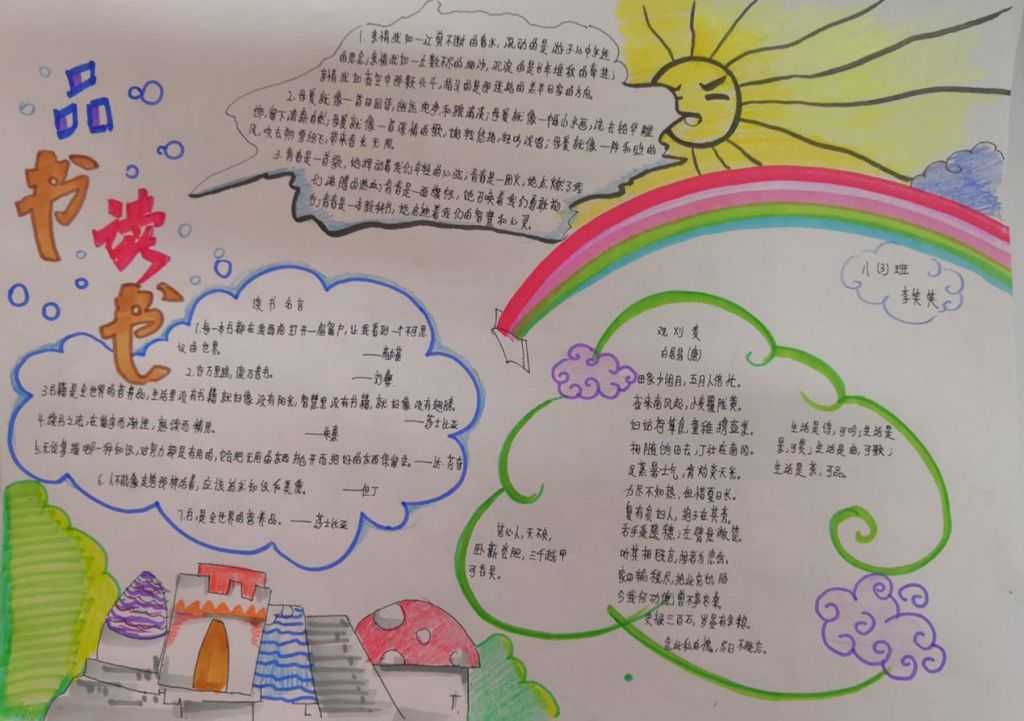 品
书
读
书
1.亲情就如一江剪不断的春水，流动的是游子心中永远
的思念；亲情就如一丘数不尽的细沙，沉淀的是长年堆积的牵挂；
亲情就如夜空中那颗北斗，指引的是那迷路的羔羊回家的方向。
2.母爱就像一首田园诗，幽远纯净和雅清淡；母爱就像一幅山水画，洗去铅华雕
饰，留下清新自然；母爱就像一首深情的歌，婉转悠扬，轻吟浅唱；母爱就像一阵和煦的
风，吹去朔雪纷飞，带来春光无限。
3.青春是一首歌，她拨动着我们年轻的心弦；青春是一团火，她点燃了我
们沸腾的热血；青春是一面旗帜，她召唤着我们勇敢前
行；青春是一本教科书，她启迪着我们的智慧和心灵。
八(3)班
李
读书名言
1.每一本书都在我面前打开一扇窗户，让我看到一个不可思
议的世界。
——高尔基
2.行万里路，读万卷书。
——刘彝
3.书籍是全世界的营养品，生活里没有书籍就好像没有阳光；智慧里没有书籍，就好像没有翅膀。
——莎士比亚
4.读书之法，在循序而渐进，熟读而精思。
——朱熹
5.无论掌握哪一种知识，对努力都是有用的，它会把无用的东西抛开而把好的东西保留住。——达·芬奇
6.人不能像走兽那样活着，应该追求知识和美德。
——但丁
7.书是全世界的营养品。——莎士比亚
观刈麦
白居易(唐)
田家少闲月，五月人倍忙。
夜来南风起，小麦覆陇黄。
妇姑荷箪食，童稚携壶浆。
相随饷田去，丁壮在南冈。
足蒸暑土气，背灼炎天光。
力尽不知热，但惜夏日长。
复有贫妇人，抱子在其旁。
右手秉遗穗，左臂悬敝筐。
听其相顾言，闻者为悲伤。
家田输税尽，拾此充饥肠
今我何功德，曾不事农桑。
吏禄三百石，岁晏有余粮。
念此私自愧，尽日不能忘。
生活是诗，可吟；生活是
景，可赏；生活是曲，可歌；
生活是茶，可品。
苦心人，天不负，
卧薪尝胆，三千越甲
可吞吴。